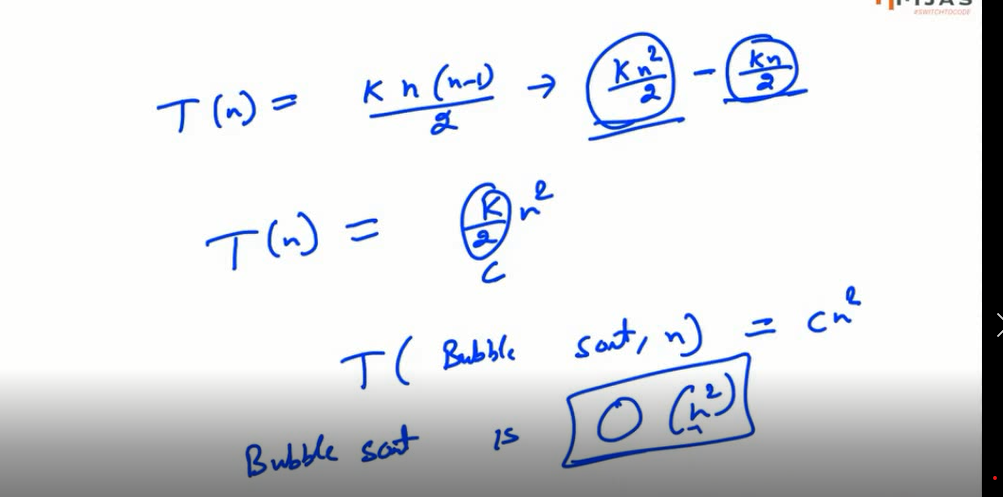 #SWITCHTOCODE
T(n) = K n (n-1) / 2 → Kn² / 2 - Kn / 2
T(n) = K / 2 n²
C
T( Bubble sort, n) = cn²
Bubble sort is O (n²)